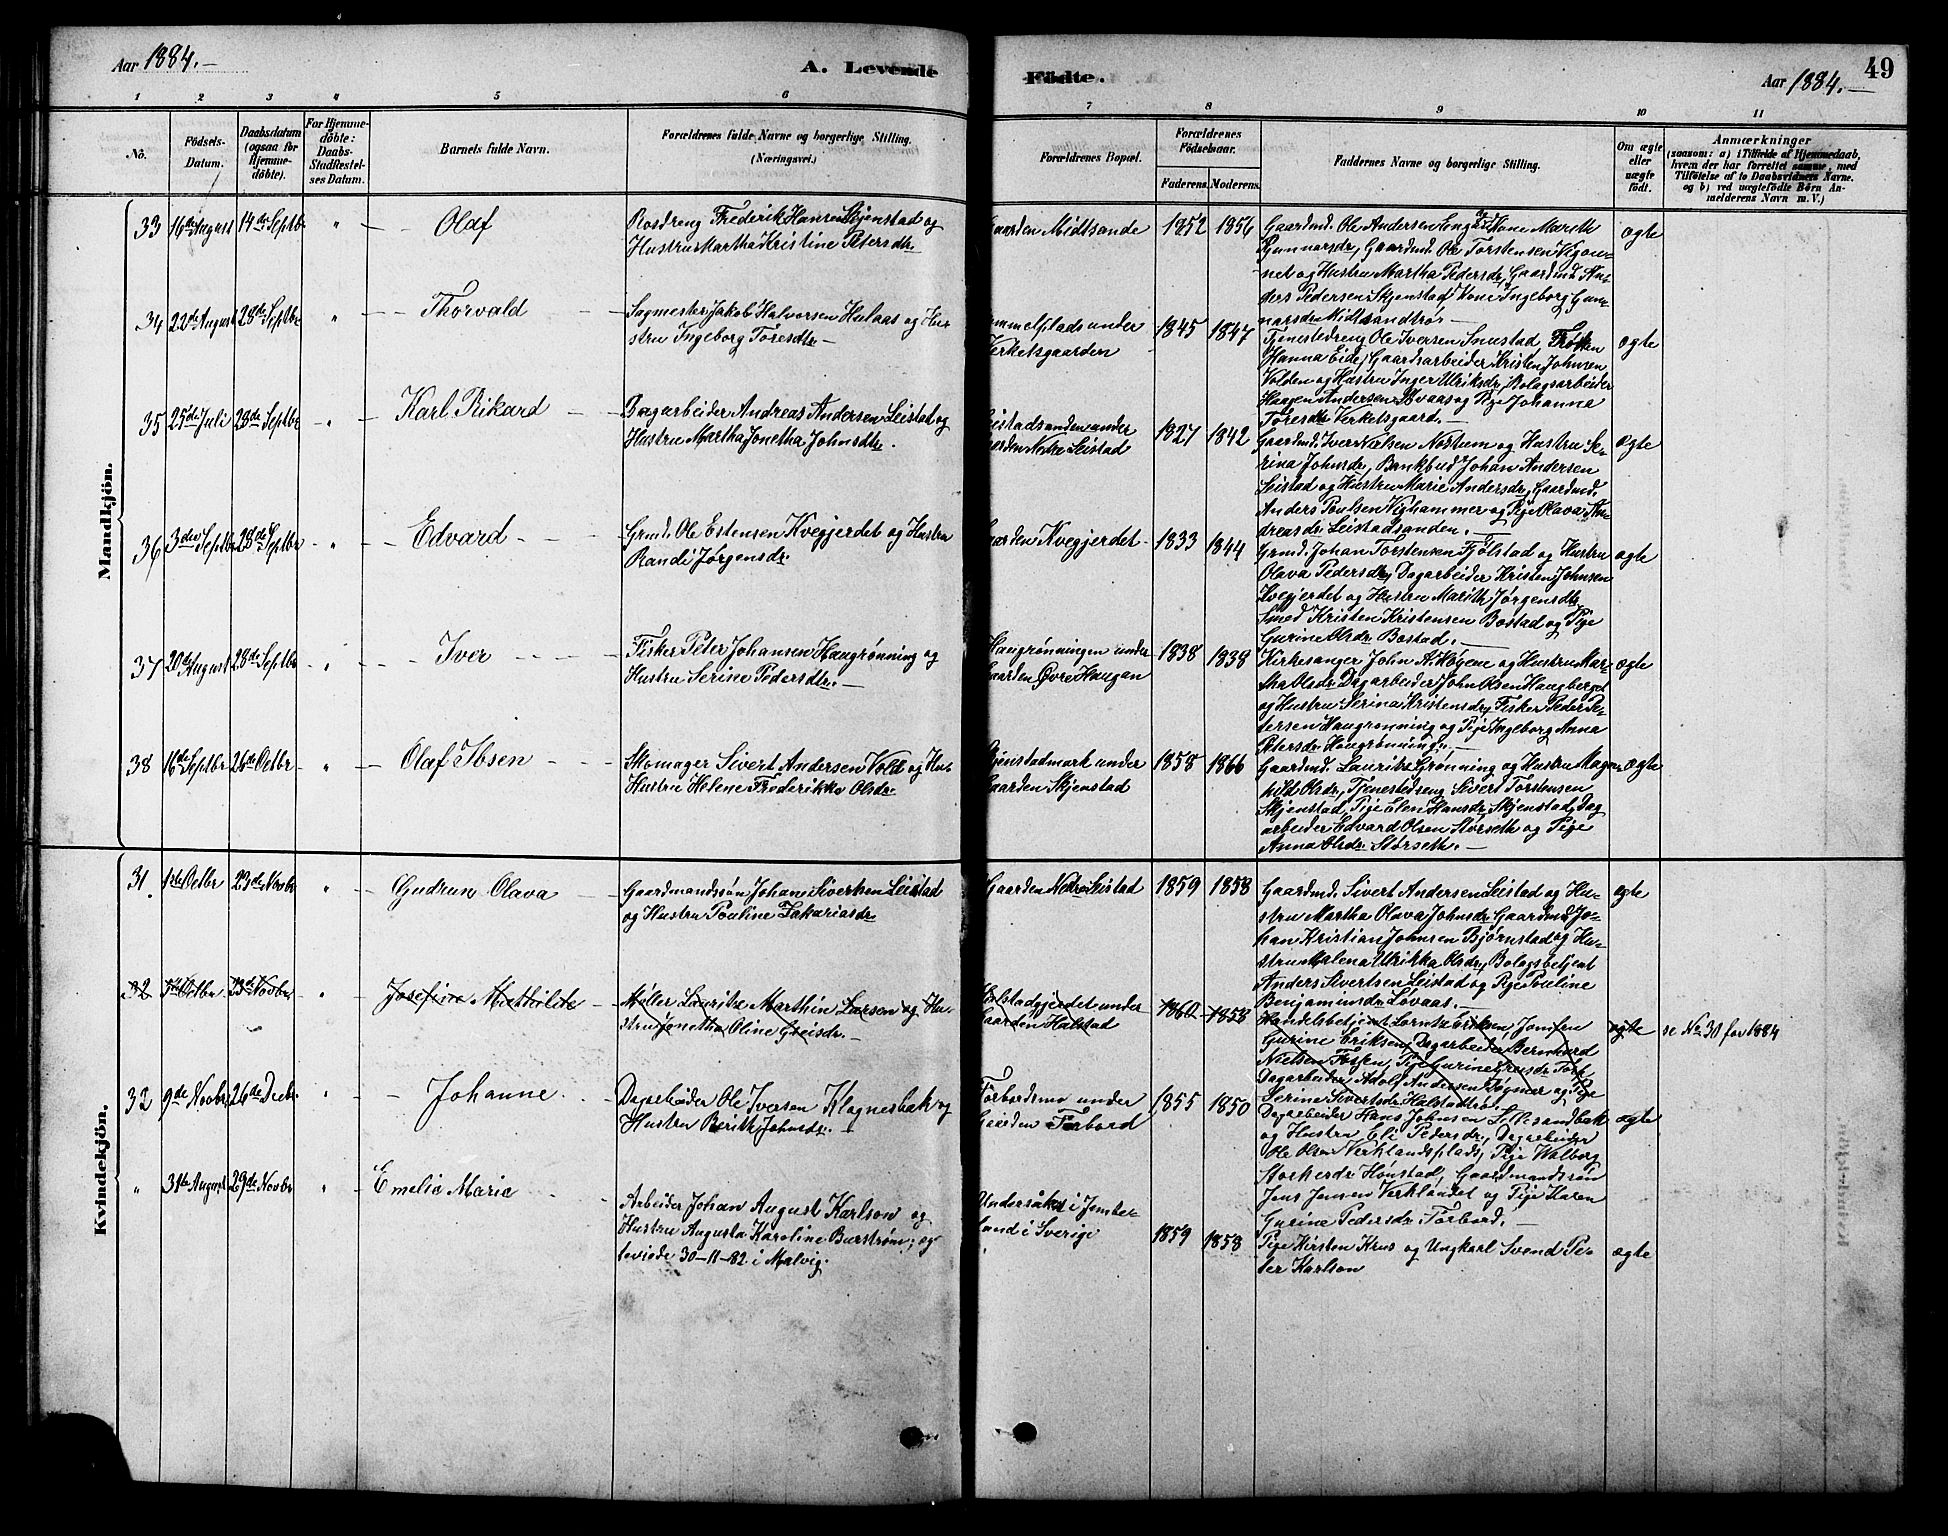 Aar 1884.—
A. Levende
Födte.
Aar 1884.—
49
1 2 3 4 5 6 7 8 9 10 11
No.
Födsels-
Datum.
Daabsdatum
(ogsaa for
Hjemme-
döbte).
For Hjemme-
döbte:
Daabs-
Stadfæstel-
ses Datum.
Barnets fulde Navn.
Forældrenes fulde Navne og borgerlige Stilling.
(Næringsvei.)
Forældrenes Bopæl.
Forældrenes
Födselsaar.
Faderens. Moderens.
Faddernes Navne og borgerlige Stilling.
Om ægte
eller
uægte
födt.
Anmærkninger
(saasom: a) i Tilfælde af Hjemmedaab,
hvem der har forrettet samme, med
Tilföielse af to Daabsvidners Navne.
og b) ved uægtefödte Börn An-
melderens Navn m. V.)
Mandkjön.
33 16de August 14de Septbr " Olaf
Hansen Skjenstad og
Hustru Martha Kristine Petersdtr
Gaarden Midtsande 1852 1856
Gaardmd. Ole Andersen Kone Marith
Gunnarsdr, Gaardmd. Ole Torstensen
og Hustru Martha Pedersdr, Gaardmd.
Pedersen Skjenstad, Kone Ingeborg Gun-
narsdr Midtsandtrø.—
ægte
34 22de August 28de Septbr " Thorvald
Sagmester Jakob Halvorsen Hulaas og Hu-
stru Ingeborg Toresdtr.—
under
Verketsgaarden
1845 1847
Tjenestedreng Ole Iversen Snustad Frøken
Hanna Eide, Gaardsarbeider Kristen Johnsen
Volden og Hustru Inger Ulriksdr, Bolagsarbeider
Haagen Andersen og Pige Johanna
Toresdtr Verketsgaard.—
ægte
35 25de Juli 28de Septbr " Karl Rikard
Dagarbeider Andreas Andersen Leistad og
Hustru Martha Jonetha Johnsdtr.
Leistadsanden under
Gaarden Nedre Leistad
1827 1842
Gaardmd. Iver Nielsen Nostum og Hustru Se-
rina Johnsdr, Bankbud Johan Andersen
Leistad og Hustru Marie Andersdr, Gaardmd.
Anders Poulsen Vighammer og Pige Olava An-
dreasdr Leistadsanden.—
ægte
36 3den Septbr 28de Septbr " Edvard
Grmd. Ole Estensen Kvegjerdet og Hustru
Randi Jørgensdr.
Gaarden Kvegjerdet 1833 1844
Grmd. Johan Torstensen Fjölstad og Hustru
Olava Pedersdr, Dagarbeider Kristen Johnsen
Kvegjerdet og Hustru Marith Jørgensdtr,
Smed Kristen Kristensen Bostad og Pige
Gurine Olsdr Bostad.—
ægte
37 20de August 28de Septbr " Iver
Fisker Peter Johansen Haugrønning og
Hustru Serine Pedersdtr.—
Haugrønningen under
Gaarden Øvre Haugan
1838 1838
Kirkesanger John A. Høyene og Hustru Mar-
tha Olsdr Dagarbeider John Olsen Haugberget
og Hustru Serina Kristensdr, Fisker Peder Pe-
tersen Haugrønning og Pige Ingeborg Anna
Petersdr Haugrønning.—
ægte
38 16de Septbr 26de Octbr " Olaf Ibsen
Skomager Sivert Andersen Vold og Hus-
Hustru Helene Frederikke Olsdr.
Skjenstadmark under
Gaarden Skjenstad
1858 1866
Gaardmd. Laurits Grønning og Hustru Magn-
hild Olsdr, Tjenestedreng Sivert Torstensen
Skjenstad, Pige Elen Hansdr Skjenstad, Dag
arbeider Edvard Olsen Størseth og Pige
Anna Olsdr Størseth.—
ægte
Kvindekjön.
31. 1ste Octbr 23de Novbr " Gudrun Olava
Gaardmandssøn Johan Sivertsen Leistad
og Hustru Pauline Zakariasdr
Gaarden Nedre Leistad 1859 1858
Gaardmd. Sivert Andersen Leistad og Hu-
stru Martha Olava Johnsdr Gaardmd. Jo-
han Kristian Johnsen Bjørnstad og Hu-
stru Malena Ulrikka Olsdr, Bolagsbetjent
Anders Sivertsen Leistad og Pige Pouline
Benjaminsdr Løvaas.—
ægte
32 5te Octbr 23de Novbr " Josefine Mathilde
Møller Lauritz Marthin Larsen og Hu-
stru Jonetha Oline Greisdr.—
Halstadgjerdet under
Gaarden Halstad
1860 1858
Handelsbetjent Lorntz Eriksen, Jomfru
Gurine Eriksen, Dagarbeider Bernhard
Nielsen Pige Gurine
Dagarbeider Adolf Andersen og Pige
Serine Sivertsdr Halstadtrø.
ægte
se No 30 for 1884
32 9de Novbr 26de Decbr " Johanne
Dagarbeider Ole Iversen Klognesbak og
Hustru Berith Johnsdr.
Forbordsmo under
Gaarden Forbord
1855 1850
Dagarbeider Hans Johnsen
og Hustru Eli Pedersdr, Dagarbeider
Ole Olsen Verklandsplads, Pige Walborg
Hønstad, Gaardmandssøn
Jens Jensen Verklandet og Pige Karen
Gurine Pedersdr Forbord.—
ægte
" 31te August 29de Novbr " Emelie Marie
Arbeider Johan August Karlson og
Hustru Augusta Karoline Burstrøm; æg
teviede 30—11—82 i Malvig.
Undersåker i Jemte-
land i Sverige
1859 1858
Pige Kirsten Krus og Ungkarl Svend Pe-
ter Karlson
ægte